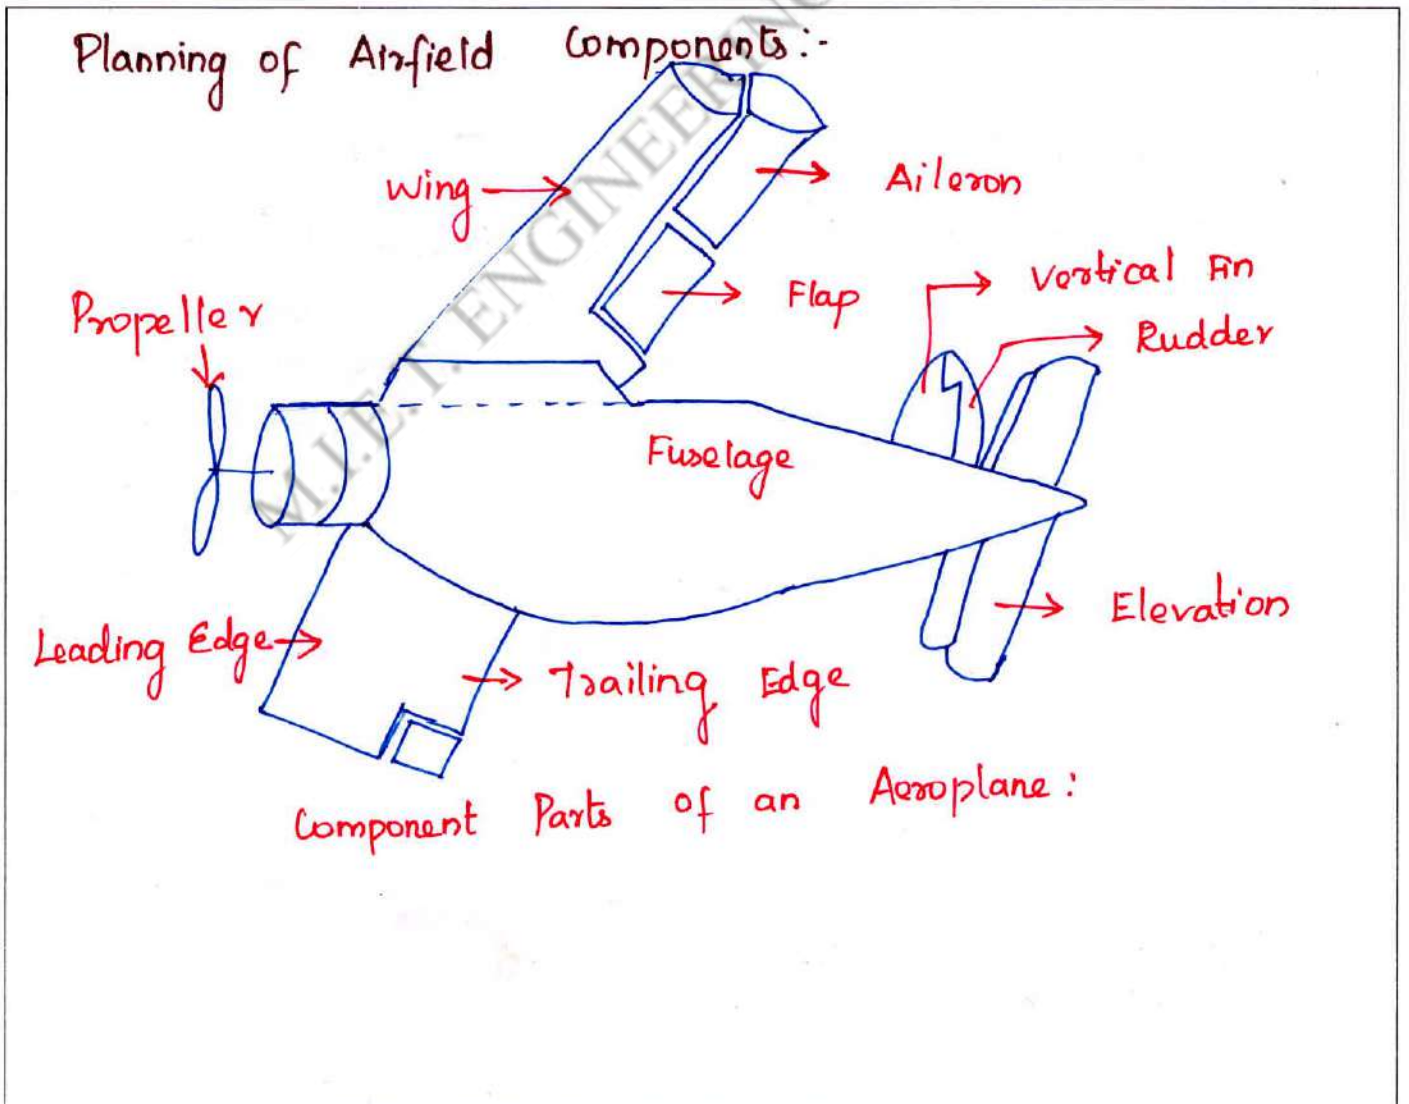 Planning of Airfield Components:-
Wing
Aileron
Flap
Vertical Fin
Rudder
Propeller
Fuselage
Elevation
Leading Edge
Trailing Edge
Component Parts of an Aeroplane:
M.I.E.T. ENGINEERING